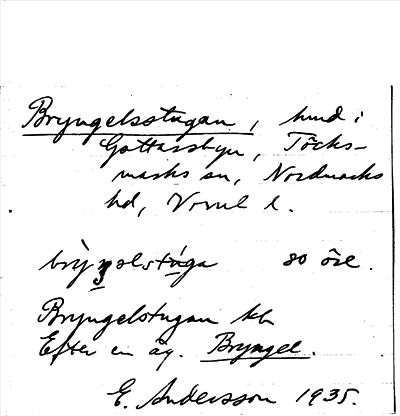 Bryngelsstugan, hmd i
Gottarsbyn, Töcks-
marks sn, Nordmarks
hd, Vrml l.
brỳŋəlstuga 80 öre.
Bryngelstugan kb
Efter en äg. Bryngel.
E. Andersson 1935.